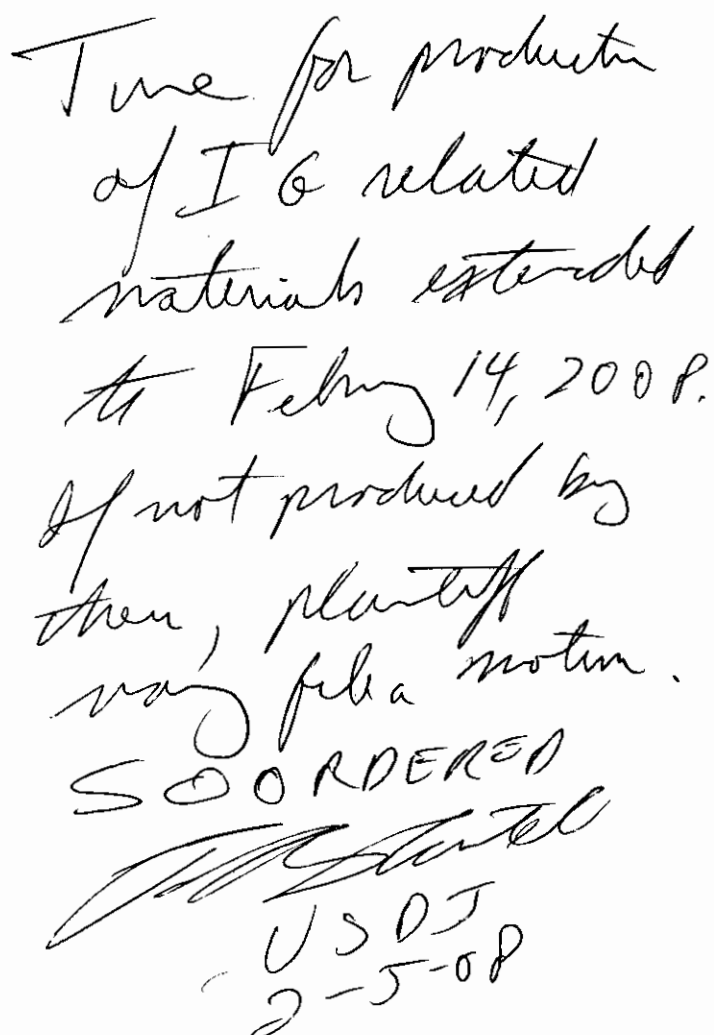 Time for production
of IG related
materials extended
to February 14, 2008.
If not produced by
then, plaintiff
may file a motion.
SO ORDERED
USDJ
2-5-08